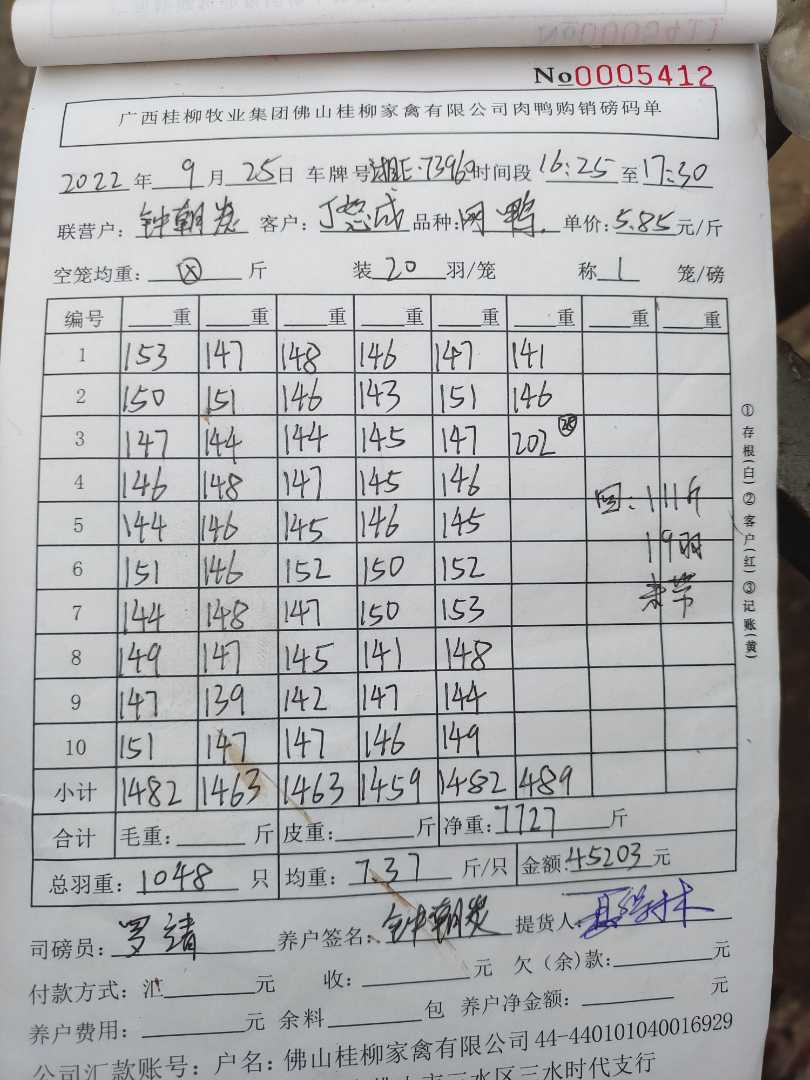 No0005412
广西桂柳牧业集团佛山桂柳家禽有限公司肉鸭购销磅码单
2022年9月25日 车牌号湘E·73969时间段16:25至17:30
联营户:钟朝 客户:丁 成 品种: 鸭. 单价:5.85元/斤
空笼均重: ⊗ 斤 装20羽/笼 称1笼/磅
编号 重 重 重 重 重 重 重 重
1 153 147 148 146 147 141
2 150 151 146 143 151 146
3 147 144 144 145 147 202 28
4 146 148 147 145 146
5 144 146 145 146 145
6 151 146 152 150 152
7 144 148 147 150 153
8 149 147 145 141 148
9 147 139 142 147 144
10 151 147 147 146 149
小计 1482 1463 1463 1459 1482 489
回:111斤
19羽
合计 毛重: 斤 皮重: 斤 净重:7727斤
总羽重:1048只 均重:7.37斤/只 金额:45203元
司磅员:罗靖 养户签名:钟朝 提货人:
付款方式:汇 元 收: 元 欠(余)款: 元
养户费用: 元 余料 包 养户净金额: 元
公司汇款账号:户名:佛山桂柳家禽有限公司44-440101040016929
三水区三水时代支行
①存根(白)②客户(红)③记账(黄)